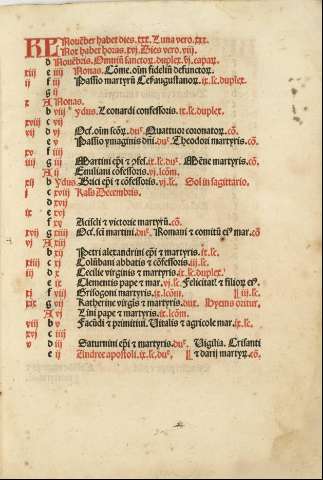 KL Nouẽber habet dies .xxx. Luna vero .xxx.
Nox habet horas .xvj. Dies vero .viij.
d Nouẽbris. Omniũ sanctorꝝ. duplex. vj. capaꝝ.
xiij e iiij Nonas. Cõme. oim fideliũ defunctoꝝ.
ij f iij Passio martyrũ Cesaraugustanoꝝ. ix. lc. duplex.
g ij
x A Nonas.
b viij ydus. Leonardi confessoris. ix. lc. duplex.
xviij c vij
vij d vj Oct. oim scõꝝ. duꝰ. Quattuor coronatoꝝ. cõ.
e v Passio ymaginis dñi. duꝰ. Theodori martyris. cõ.
xv f iiij
iiij g iij Martini epĩ ⁊ cõfes. ix. lc. duꝰ. Mẽne martyris. cõ.
A ij Emiliani cõfessoris. vj. lcõm.
xij b ydus. Brici epĩ ⁊ cõfessoris. vj. lc. Sol in sagittario.
j c xviij Kalẽ. Decembris.
d xvij
ix e xvj
f xv Aciscli ⁊ victorie martyrũ. cõ.
xvij g xiiij Oct. sci martini. duꝰ. Romani ⁊ comitũ eiꝰ mar. cõ
vj A xiij
b xij
xiiij c xj Petri alexandrini epĩ ⁊ martyris. ix. lc.
iij d x Cecilie virginis ⁊ martyris. ix. lc. duplex.
e ix Clementis pape ⁊ mar. vj. lc. Felicitatꝭ ⁊ filioꝝ eiꝰ.
xj f viij Grisogoni martyris. ix. lcõm. iij. lc.
xix g vij Katherine virgĩs ⁊ martyris. Hyems oritur.
A vj Lini pape ⁊ martyris. ix. lcõm.
viij b v Facũdi ⁊ primitiui. Uitalis ⁊ agricole mar. ix. lc.
c iiij
v d iij Saturnini epĩ ⁊ martyris. duꝰ. Uigilia. Crisanti
e ij Andree apostoli. ix. lc. duꝰ. ⁊ darij martyꝝ. cõ.